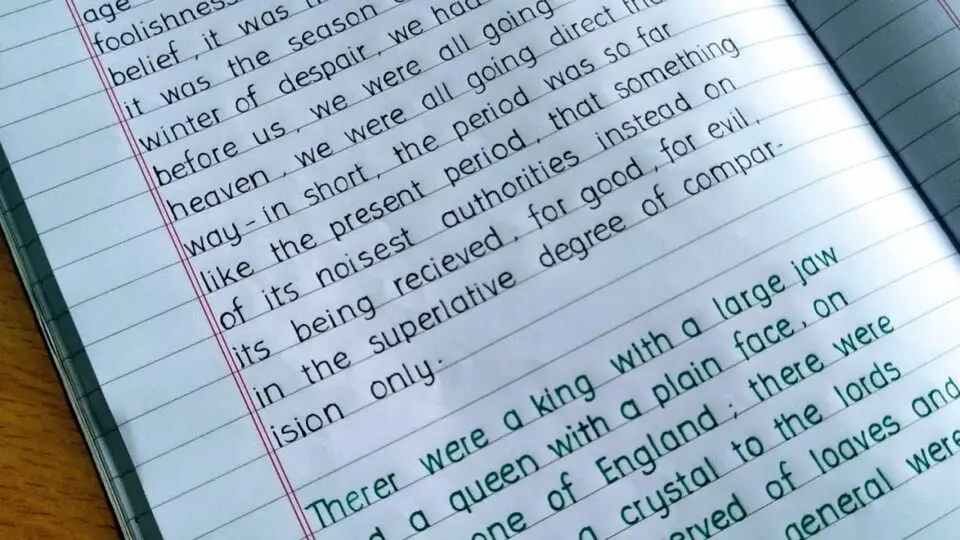 age
foolishness
belief, it was
it was the season
winter of despair, we had
before us, we were all going
heaven, we were all going direct
way - in short, the period was so far
like the present period, that something
of its noisest authorities instead on
its being recieved, for good, for evil,
in the superlative degree of compar-
ision only.
Therer were a king with a large jaw
a queen with a plain face, on
one of England; there were
crystal to the lords
of loaves and
general were